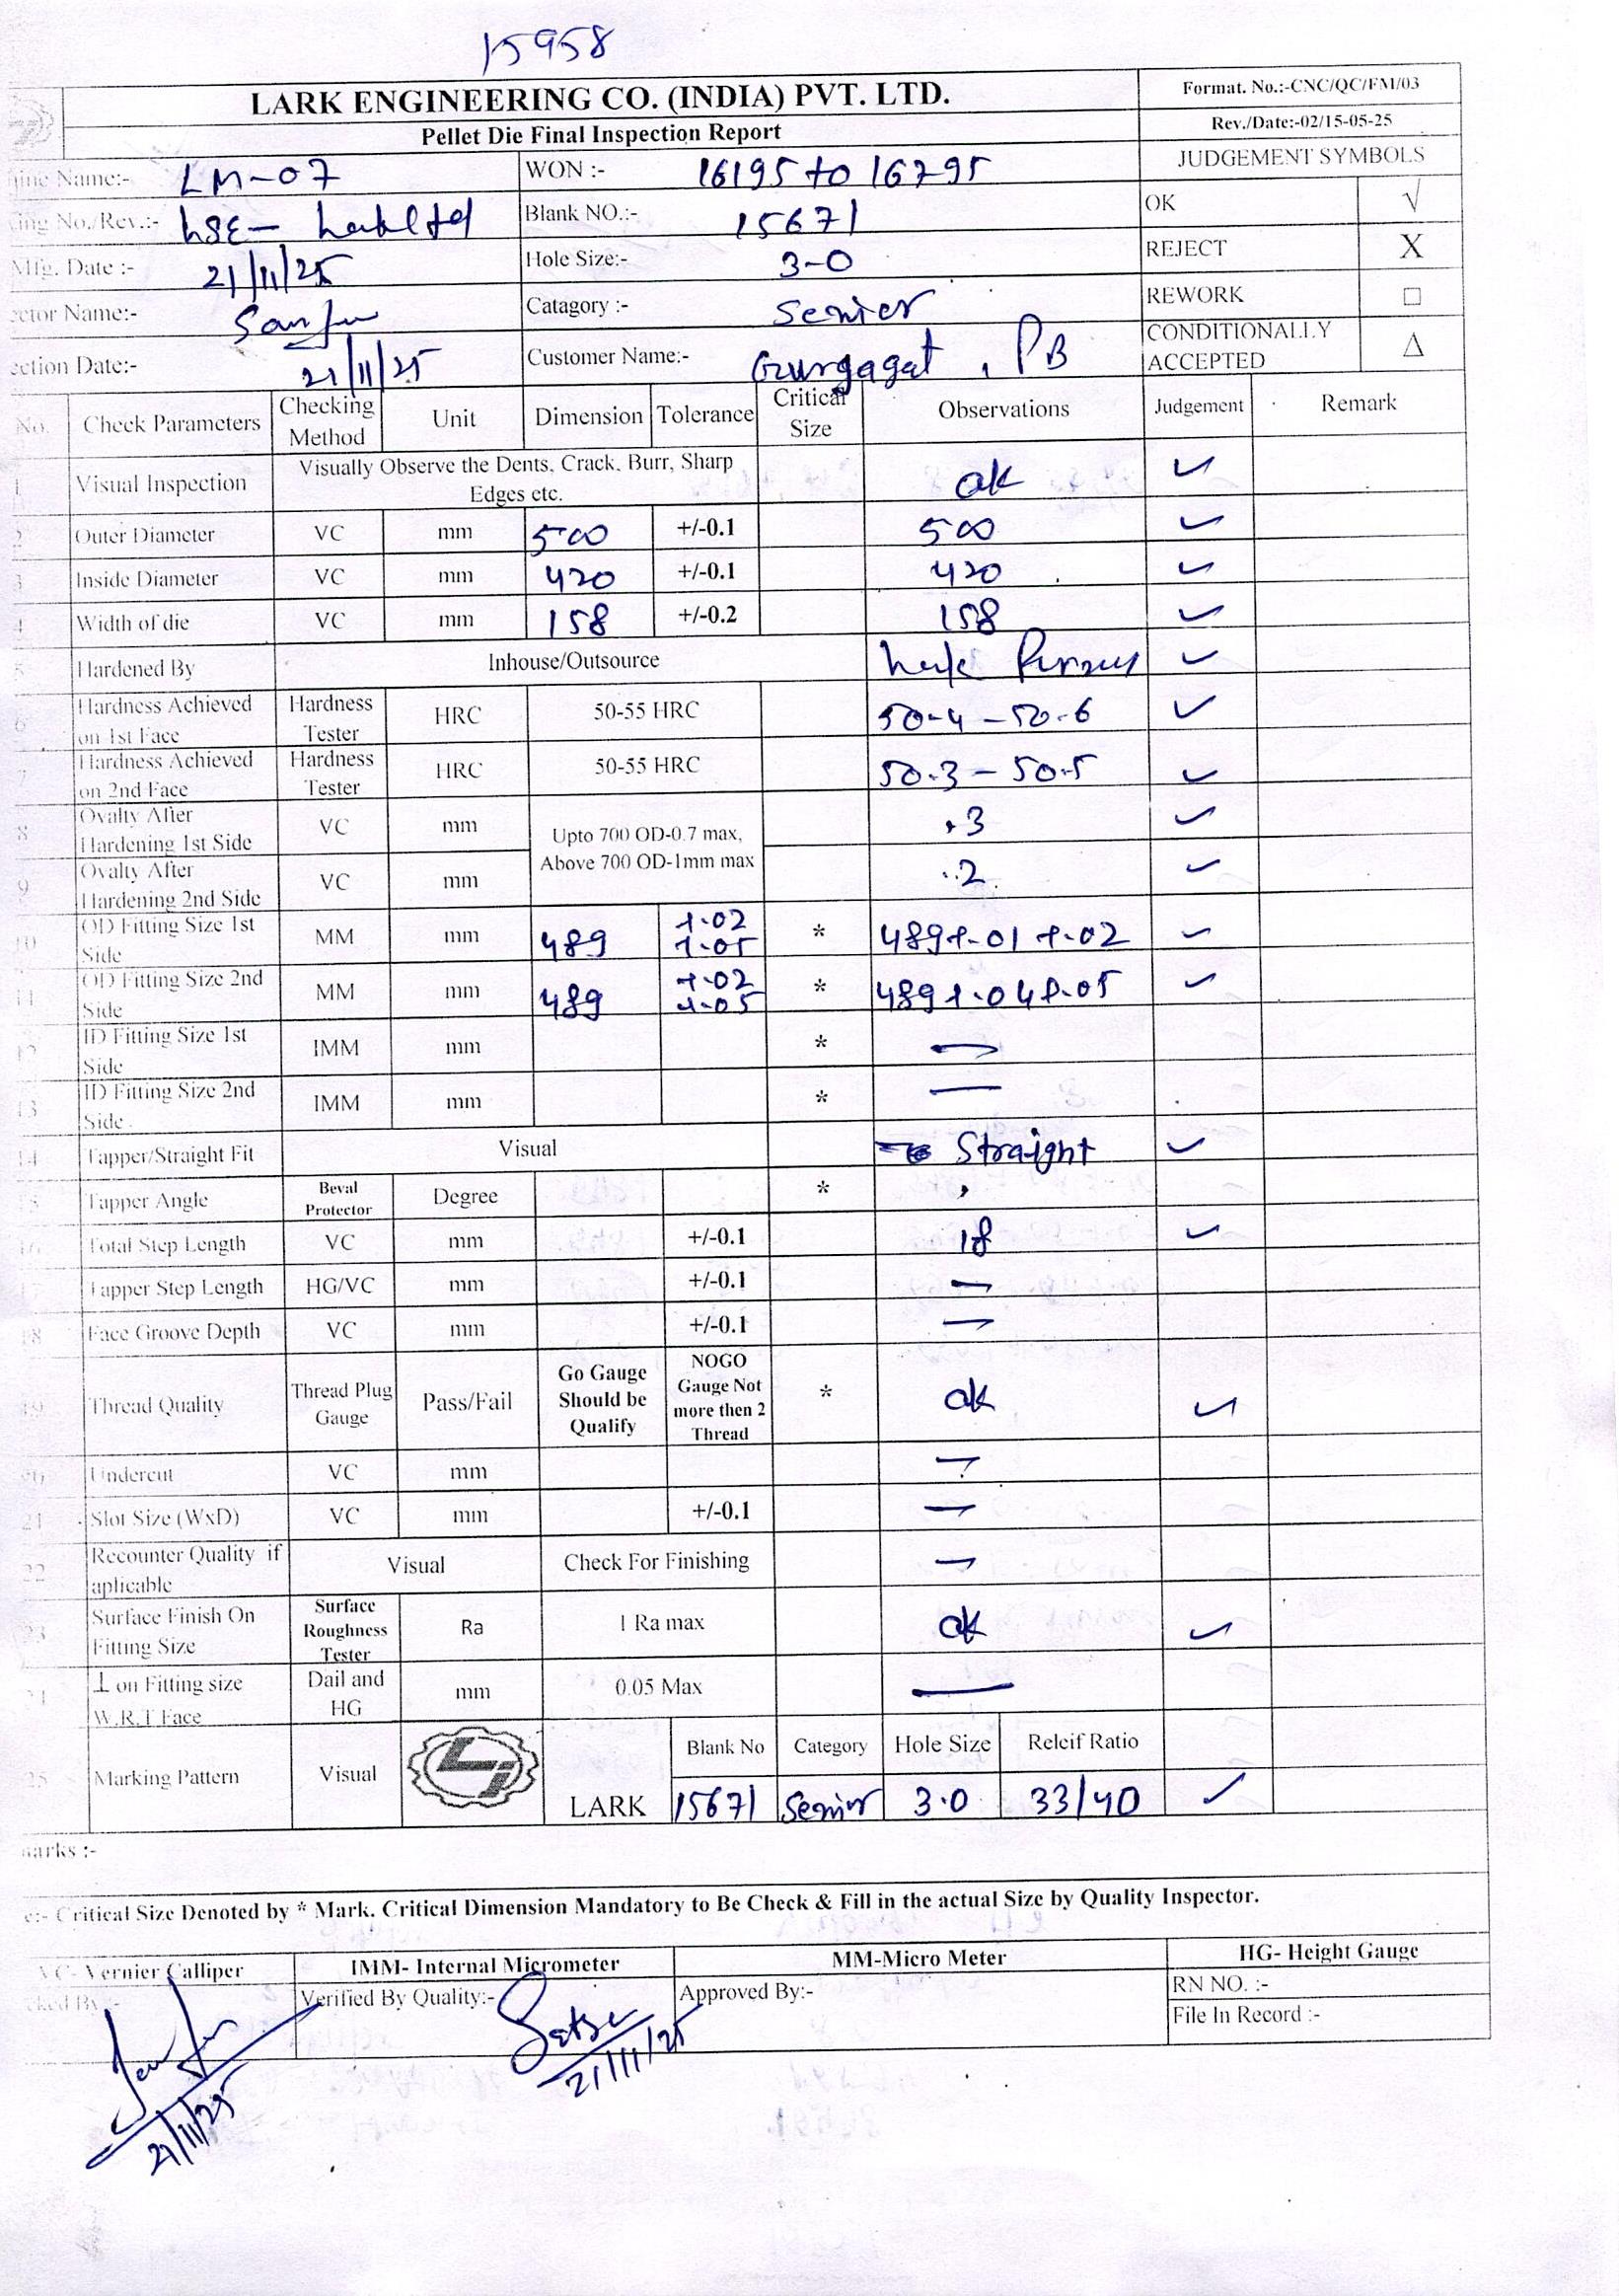 15958
LARK ENGINEERING CO. (INDIA) PVT. LTD.
Format. No.:-CNC/QC/FM/03
Pellet Die Final Inspection Report
Rev./Date:-02/15-05-25
Name:- LM-07 WON :- 16195 to 16795 JUDGEMENT SYMBOLS
No./Rev.:- Blank NO.:- 15671 OK √
Mfg. Date :- 21/11/25 Hole Size:- 3-0 REJECT X
Name:- Catagory :- Senior REWORK □
ection Date:- 21/11/25 Customer Name:- , PB CONDITIONALLY ACCEPTED Δ
No. Check Parameters Checking Method Unit Dimension Tolerance Critical Size Observations Judgement Remark
1 Visual Inspection Visually Observe the Dents, Crack, Burr, Sharp Edges etc. ok ✓
2 Outer Diameter VC mm 500 +/-0.1 500 ✓
3 Inside Diameter VC mm 420 +/-0.1 420 ✓
4 Width of die VC mm 158 +/-0.2 158 ✓
5 Hardened By Inhouse/Outsource ✓
6 Hardness Achieved on 1st Face Hardness Tester HRC 50-55 HRC 50-4 - 50-6 ✓
7 Hardness Achieved on 2nd Face Hardness Tester HRC 50-55 HRC 50.3 - 50.5 ✓
8 Ovalty After Hardening 1st Side VC mm Upto 700 OD-0.7 max, Above 700 OD-1mm max .3 ✓
9 Ovalty After Hardening 2nd Side VC mm .2 ✓
10 OD Fitting Size 1st Side MM mm 489 +.02 +.05 * 489+.01 +.02 ✓
11 OD Fitting Size 2nd Side MM mm 489 +.02 +.05 * 489+.04+.05 ✓
12 ID Fitting Size 1st Side IMM mm * —
13 ID Fitting Size 2nd Side IMM mm * —
14 Tapper/Straight Fit Visual Straight ✓
15 Tapper Angle Beval Protector Degree *
16 Total Step Length VC mm +/-0.1 18 ✓
17 Tapper Step Length HG/VC mm +/-0.1 —
18 Face Groove Depth VC mm +/-0.1 —
19 Thread Quality Thread Plug Gauge Pass/Fail Go Gauge Should be Qualify NOGO Gauge Not more then 2 Thread * ok ✓
20 Undercut VC mm —
21 Slot Size (WxD) VC mm +/-0.1 —
22 Recounter Quality if aplicable Visual Check For Finishing —
23 Surface Finish On Fitting Size Surface Roughness Tester Ra 1 Ra max ok ✓
24 ⊥ on Fitting size W.R.T Face Dail and HG mm 0.05 Max —
25 Marking Pattern Visual LARK Blank No Category Hole Size Releif Ratio
15671 Senior 3.0 33/40 ✓
arks :-
e:- Critical Size Denoted by * Mark. Critical Dimension Mandatory to Be Check & Fill in the actual Size by Quality Inspector.
VC- Vernier Calliper IMM- Internal Micrometer MM-Micro Meter HG- Height Gauge
cked By:- Verified By Quality:- Approved By:- RN NO. :-
File In Record :-
21/11/25
21/11/25